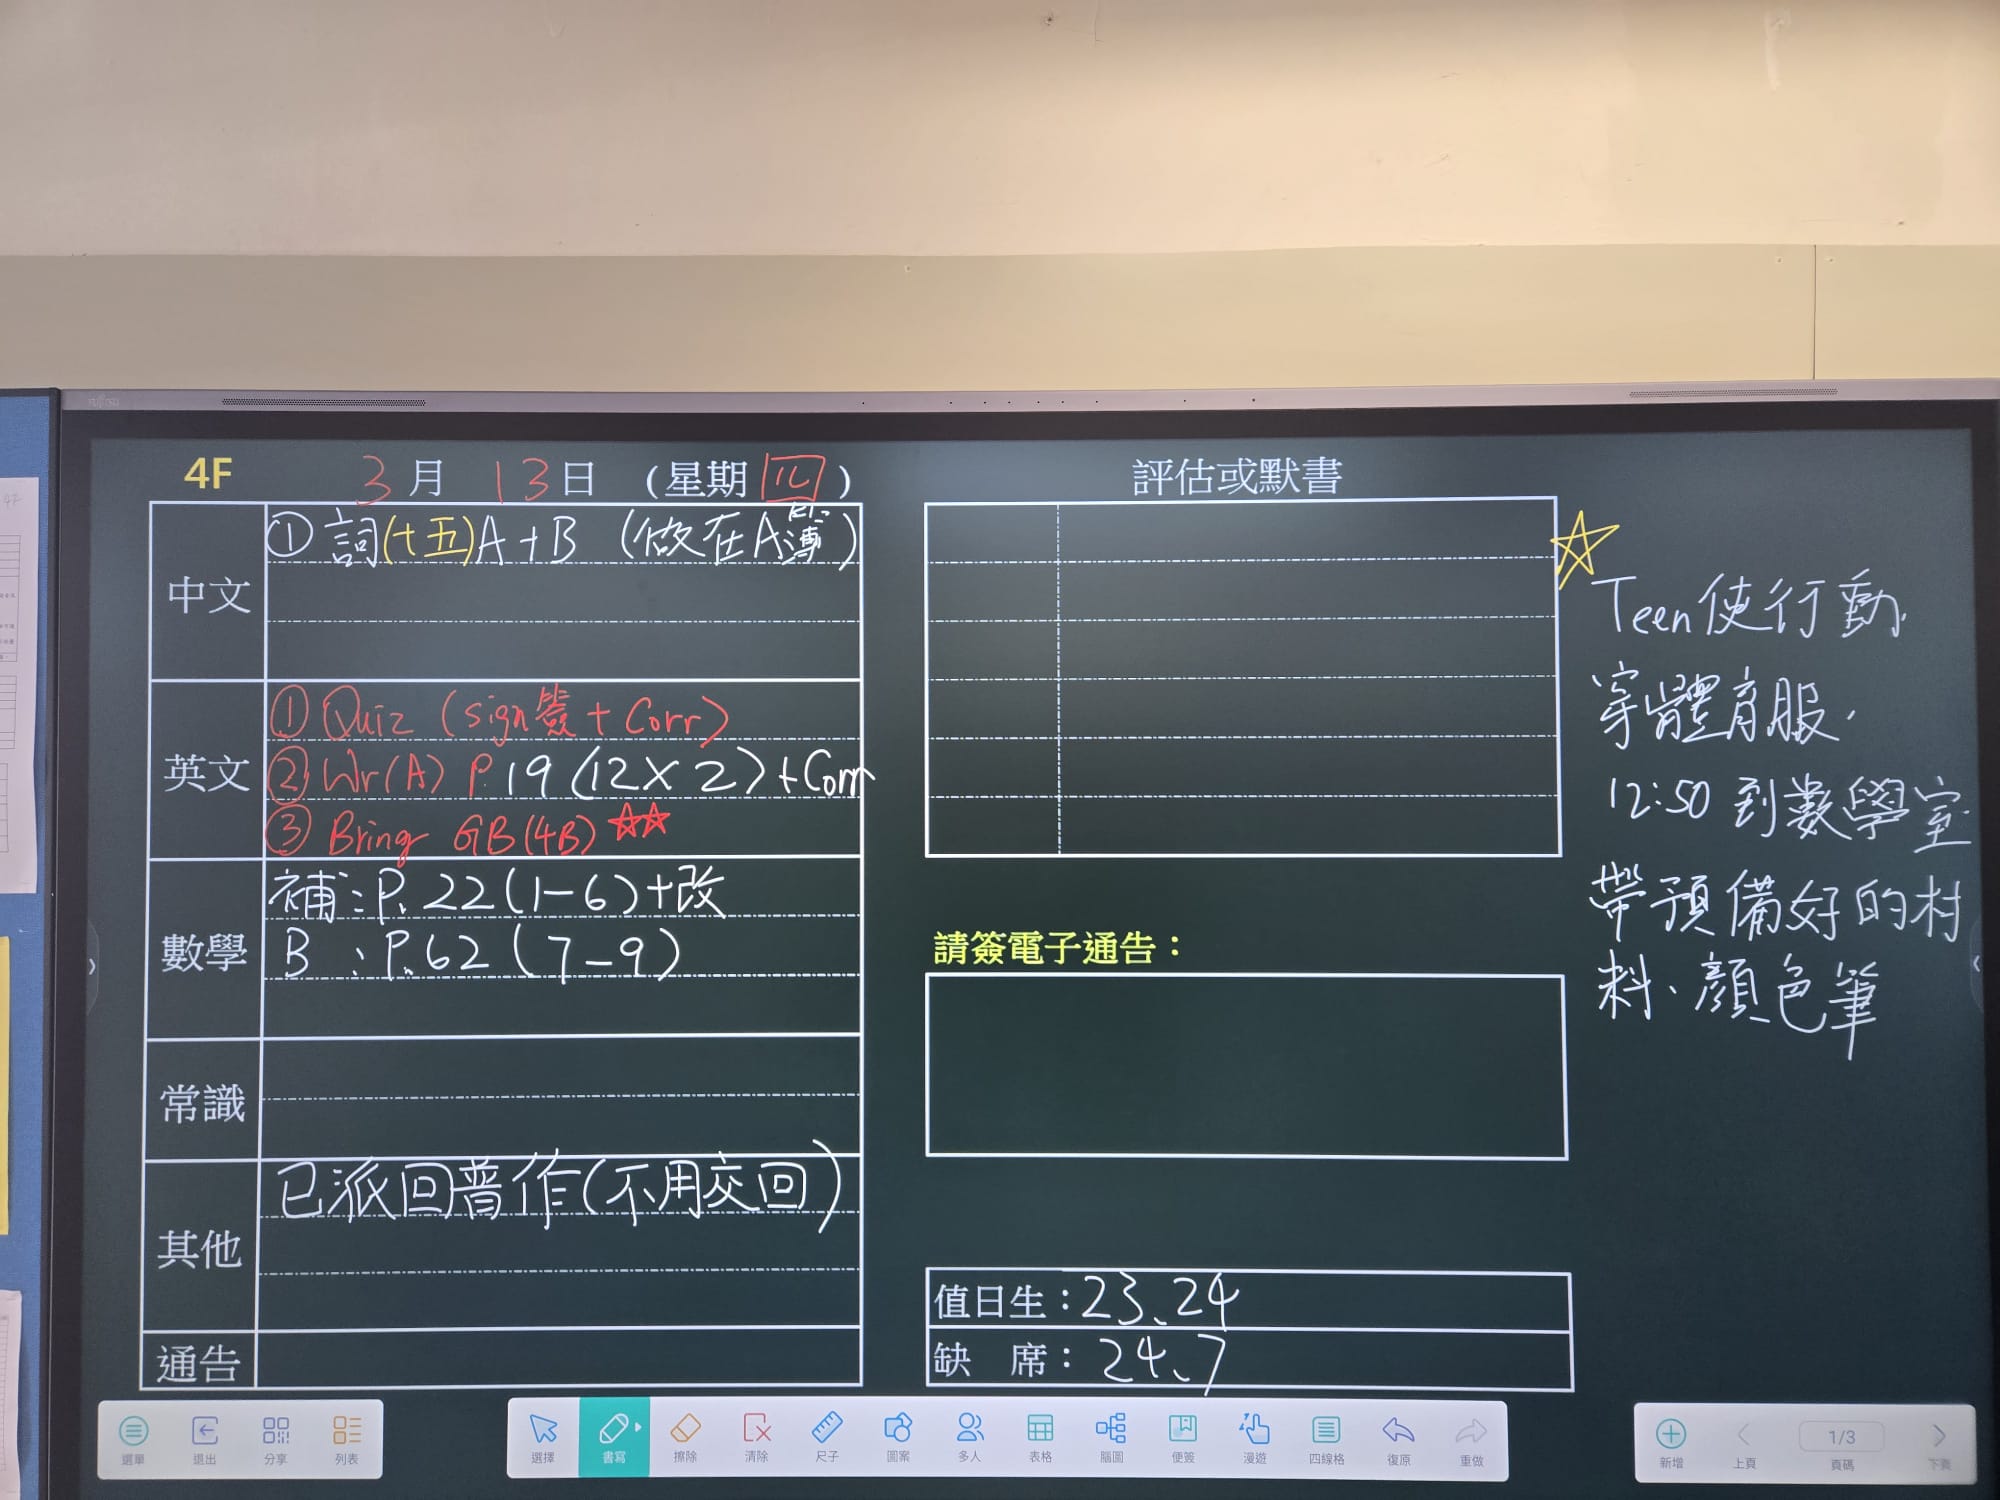 FUJITSU
4F 3月 13日 (星期四)
中文
①詞(十五)A+B (做在A簿)
英文
①Quiz (sign簽+Corr)
②Wr(A) P.19(12X2)+Corr
③Bring GB(4B)☆☆
數學
補:P.22(1-6)+改
B:P.62(7-9)
常識
其他
已派回普作(不用交回)
通告
評估或默書
請簽電子通告:
值日生:23、24
缺 席:24、7
☆
Teen使行動
穿體育服.
12:50到數學室
帶預備好的材
料、顏色筆
選單 退出 分享 列表
選擇 書寫 擦除 清除 尺子 圖案 多人 表格 腦圖 便簽 漫遊 四線格 復原 重做
新增 上頁 1/3 頁碼 下頁